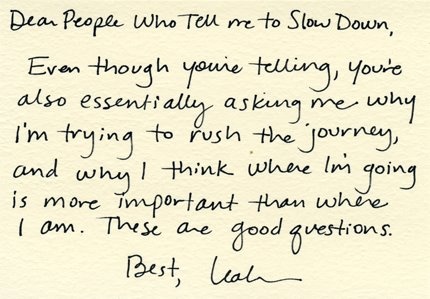 Dear People Who Tell me to Slow Down,
Even though you're telling, you're
also essentially asking me why
I'm trying to rush the journey,
and why I think where I'm going
is more important than where
I am. These are good questions.
Best, Leah